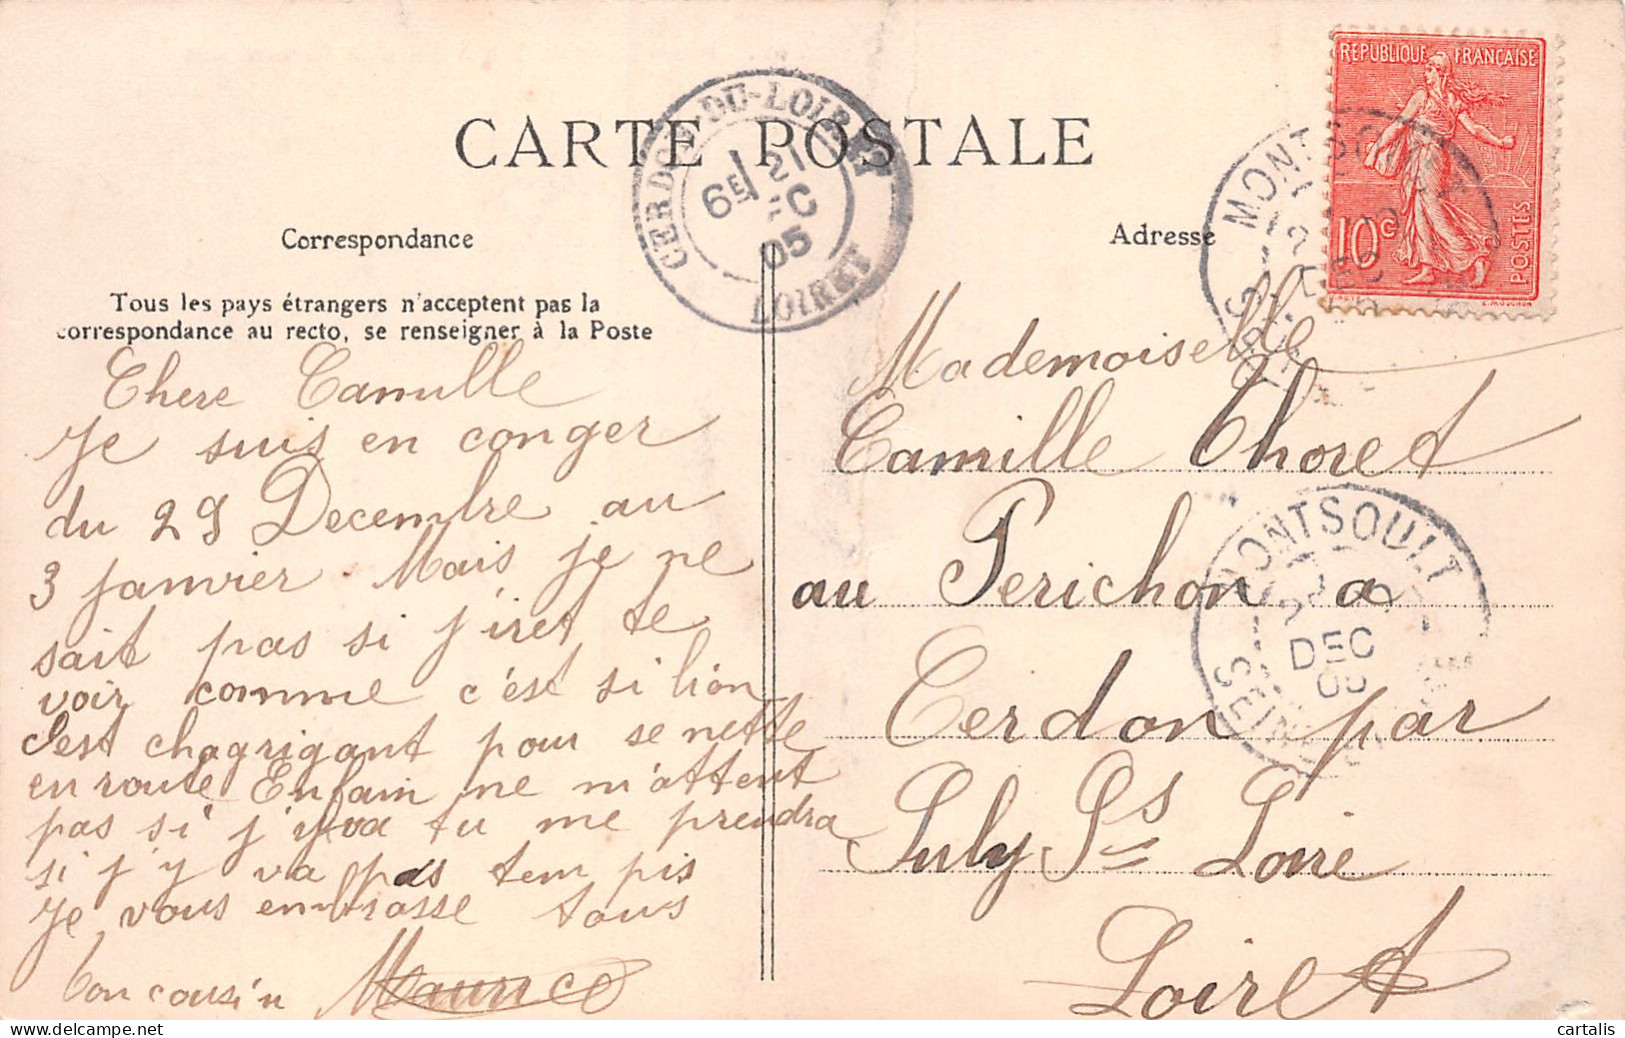 CARTE POSTALE
Correspondance
Tous les pays étrangers n'acceptent pas la
correspondance au recto, se renseigner à la Poste
Chere Camille
Je suis en conger
du 29 Decembre au
3 janvier Mais je ne
sait pas si j'iret te
voir comme c'est si lion
c'est chagrigant pour se nette
en route Enfain ne m'attent
pas si j'y va tu me prendra
si j'y va pas tem pis
Je vous embrasse tous
ton cousin Maurice
CERDON-DU-LOIRET
6E 21
05
LOIRET
Adresse
REPUBLIQUE FRANÇAISE
10c
POSTES
MONTSOULT
DEC
Mademoiselle
Camille Thoret
au Perichon a
Cerdon par
Suly Ss Loire
Loiret
MONTSOULT
DEC
05
SEINE
cartalis